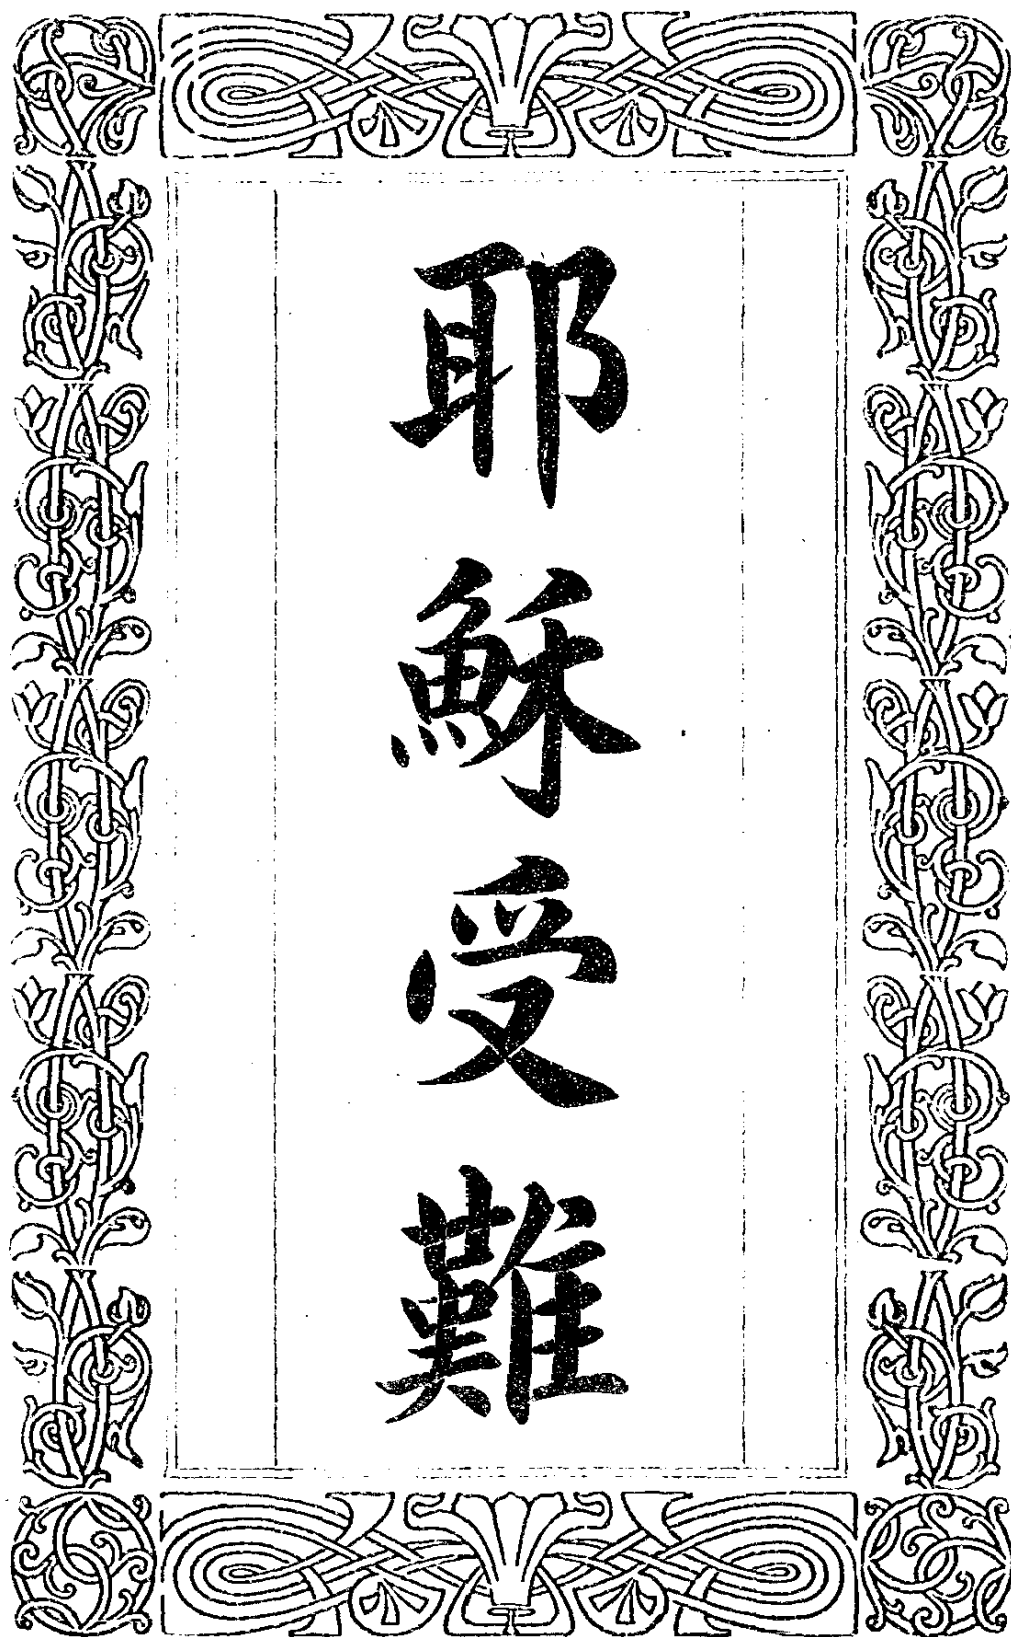 耶穌受難